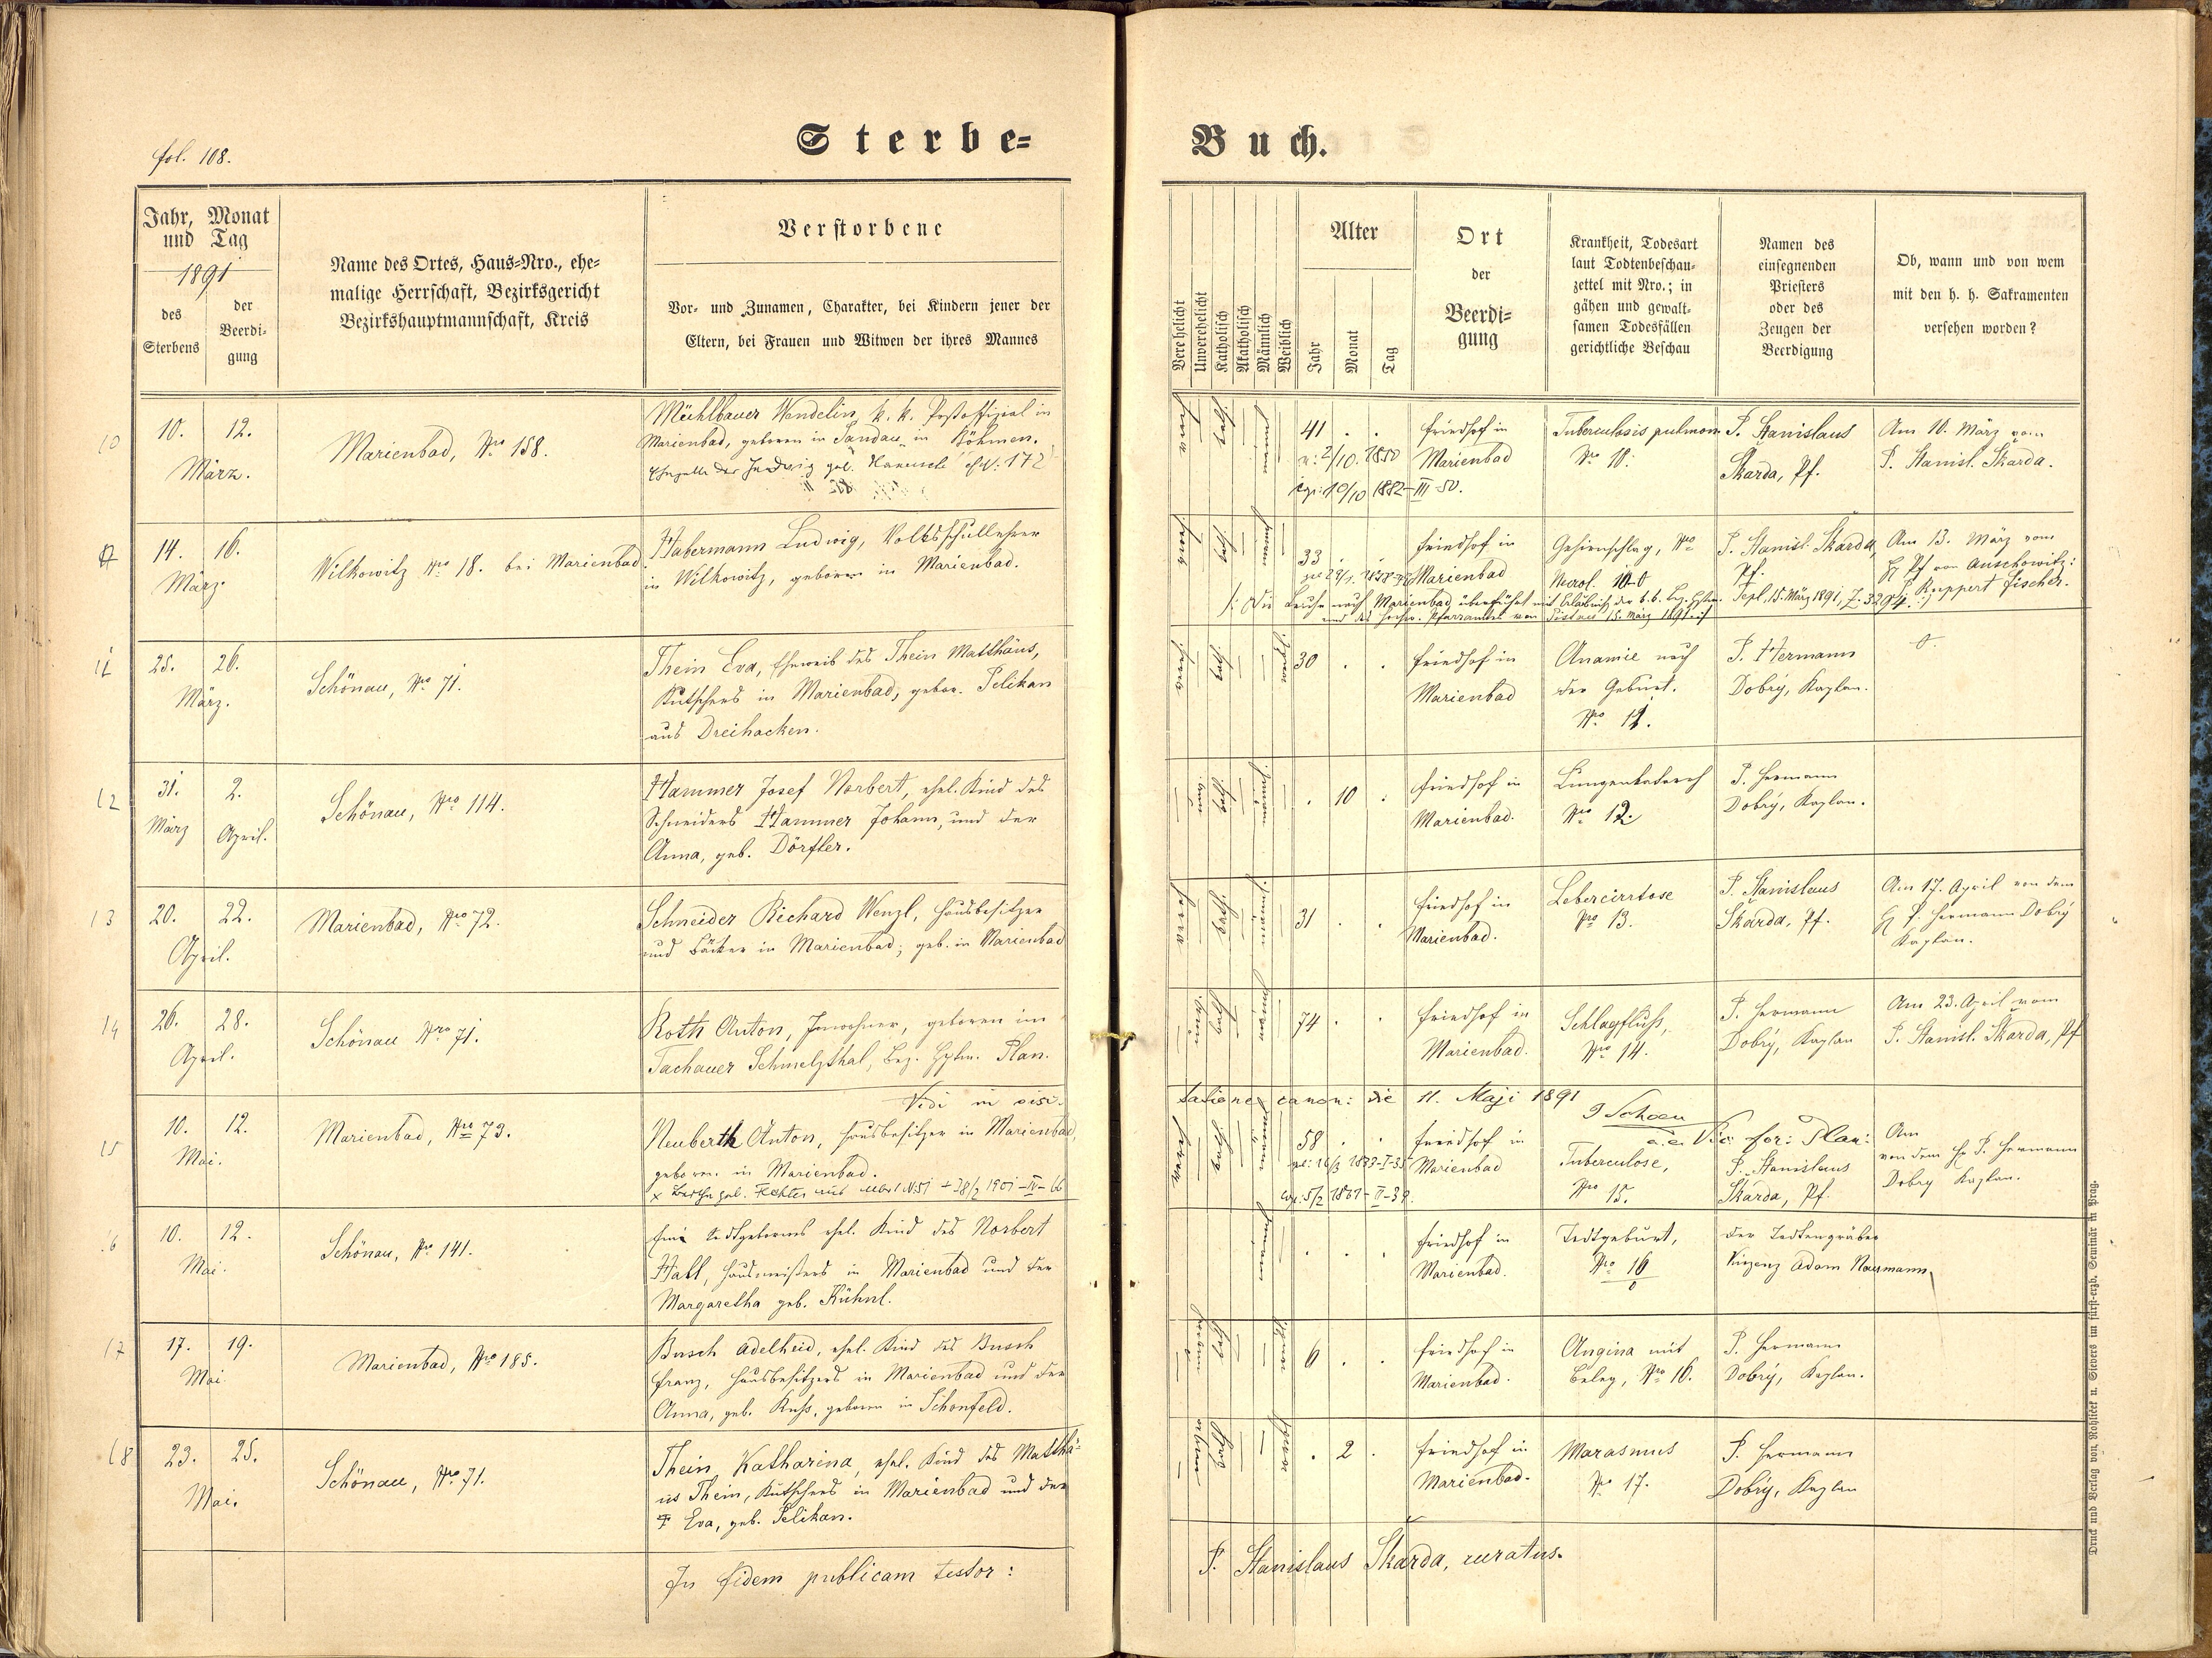 fol. 108.
Sterbe=
Buch.
Jahr, Monat
und Tag
1891
des
Sterbens
der
Beerdi-
gung
Name des Ortes, Haus=Nro., ehe=
malige Herrschaft, Bezirksgericht
Bezirkshauptmannschaft, Kreis
Verstorbene
Vor- und Zunamen, Charakter, bei Kindern jener der
Eltern, bei Frauen und Witwen der ihres Mannes
Verehelicht
Unverehelicht
Katholisch
Akatholisch
Männlich
Weiblich
Alter
Jahr
Monat
Tag
Ort
der
Beerdi=
gung
Krankheit, Todesart
laut Todtenbeschau=
zettel mit Nro.; in
gähen und gewalt=
samen Todesfällen
gerichtliche Beschau
Namen des
einsegnenden
Priesters
oder des
Zeugen der
Beerdigung
Ob, wann und von wem
mit den h. h. Sakramenten
versehen worden?
10
10. 12.
März.
Marienbad, Nro 158.
Mühlbauer Wendelin, k. k. Postoffizial in
Marienbad, geboren in Sandau in Böhmen.
41 . .
n: 2/10. 1850
10/10 1882-III-50.
Friedhof in
Marienbad
Tuberculosis pulmon.
Nro 10.
P. Stanislaus
Skarda, Pf.
Am 10. März vom
P. Stanisl. Skarda.
14. 16.
März.
Wilkowitz Nro 18. bei Marienbad
Habermann Ludwig, Volksschullehrer
in Wilkowitz, geboren in Marienbad.
33
Friedhof in
Marienbad
Gehirnschlag, Nro
P. Stanisl. Skarda,
Pf.
Am 13. März vom
H Pf von Auschowitz:
P. Ruppert Fischer.
/: Die Leiche nach Marienbad überführt mit Erlaubniß der k. k. Bez. Hptm. Tepl, 15. März 1891, Z. 3294.
11
25. 26.
März.
Schönau, Nro 71.
Thein Eva, Eheweib des Thein Matthäus,
Kutschers in Marienbad, gebor. Pelikan
aus Dreihacken.
30 . .
Friedhof in
Marienbad
Anämie nach
der Geburt.
Nro 11.
P. Hermann
Dobrý, Kaplan.
0.
12
31. 2.
März April.
Schönau, Nro 114.
Hammer Josef Norbert, ehel. Kind des
Schneiders Hammer Johann, und der
Anna, geb. Dörfler.
. 10 .
Friedhof in
Marienbad.
Lungenkatarrh
Nro 12.
P. Hermann
Dobrý, Kaplan.
13
20. 22.
April.
Marienbad, Nro 72.
Schneider Richard Wenzl, Hausbesitzer
und Bäcker in Marienbad; geb. in Marienbad
31 . .
Friedhof in
Marienbad.
Lebercirrtose
Nro 13.
P. Stanislaus
Skarda, Pf.
Am 17. April von dem
H P. Hermann Dobrý
Kaplan.
14
26. 28.
April.
Schönau Nro 71.
Roth Anton, Inwohner, geboren im
Tachauer Schmelzthal, Bez. Hptm. Plan.
74 . .
Friedhof in
Marienbad.
Schlagfluß,
Nro 14.
P. Hermann
Dobrý, Kaplan
Am 23. April vom
P. Stanisl. Skarda, Pf
Vidi in visi-
tatione canon: die 11. Maji 1891
15
10. 12.
Mai.
Marienbad, Nro 73.
Neuberth Anton, Hausbesitzer in Marienbad,
geboren in Marienbad.
58 . .
Friedhof in
Marienbad
Tuberculose,
Nro 15.
P. Stanislaus
Skarda, Pf.
Am
von dem H P. Hermann
Dobrý Kaplan.
16
10. 12.
Mai.
Schönau, Nro 141.
Ein todtgebornes ehel. Kind des Norbert
Hall, Hausmeisters in Marienbad und der
Margaretha geb. Kühnl.
. . .
Friedhof in
Marienbad.
Todtgeburt,
Nro 16
0
Der Todtengräber
Vinzenz Adam Naumann.
17
17. 19.
Mai.
Marienbad, Nro 185.
Busch Adelheid, ehel. Kind des Busch
Franz, Hausbesitzers in Marienbad und der
Anna, geb. Ruß, geboren in Schönfeld.
6 . .
Friedhof in
Marienbad.
Angina mit
Beleg, Nro 16.
P. Hermann
Dobrý, Kaplan.
18
23. 25.
Mai.
Schönau, Nro 71.
Thein Katharina, ehel. Kind des Matthä-
us Thein, Kutschers in Marienbad und der
Eva, geb. Pelikan.
. 2 .
Friedhof in
Marienbad.
Marasmus
Nro 17.
P. Hermann
Dobrý, Kaplan
In fidem publicam testor:
P. Stanislaus Skarda, curatus.
Druck und Verlag von Rohliček u. Sievers im fürst-erzb. Seminär in Prag.